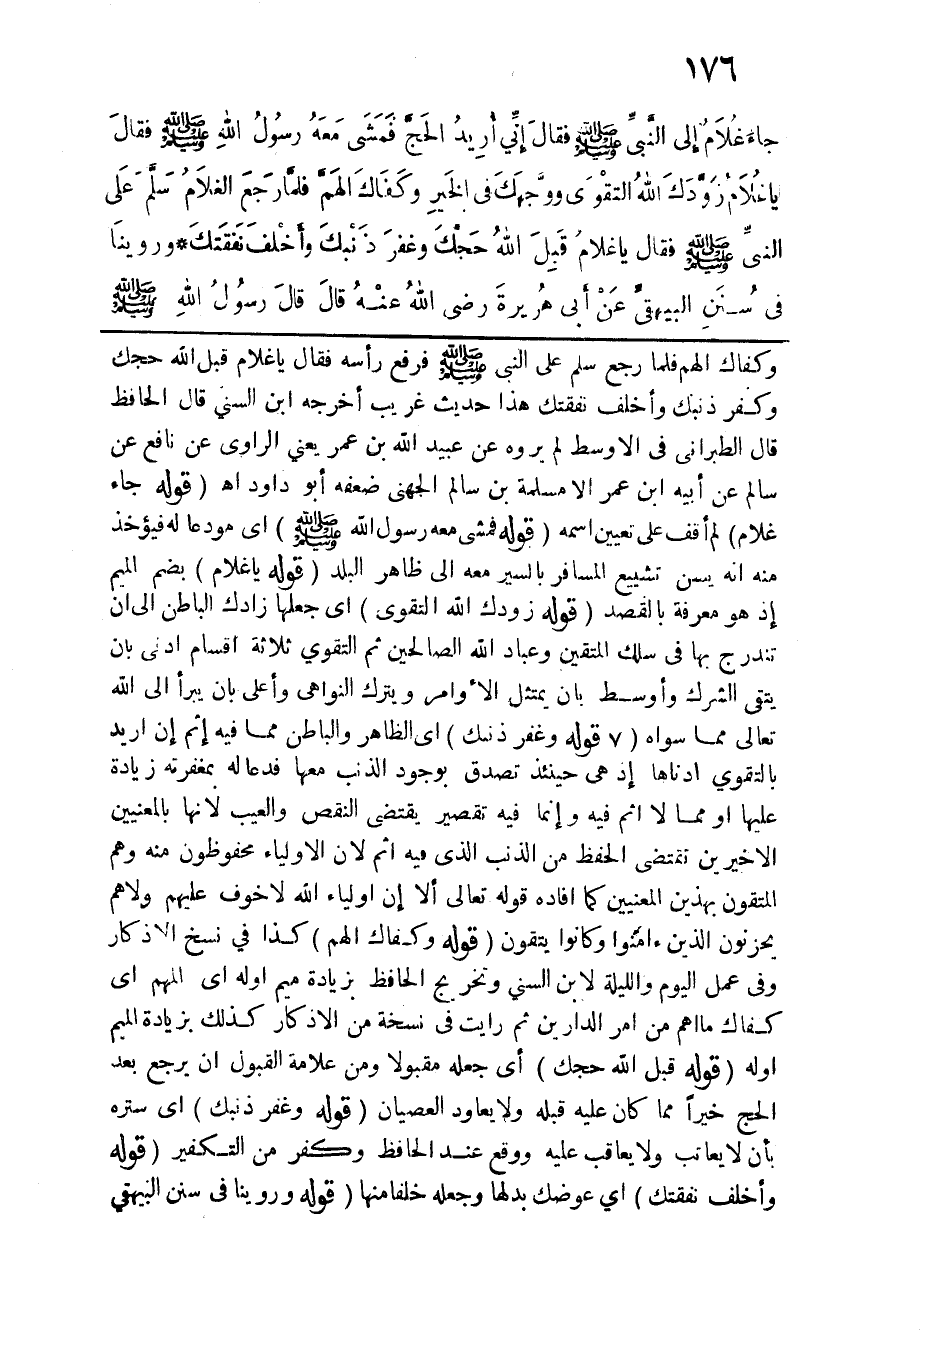 ١٧٦
جاءَ غُلَامٌ إلى النَّبىِّ ﷺ فقالَ إنِّي أُرِيدُ الحَجَّ فَمَشَى مَعَهُ رسولُ اللهِ ﷺ فقالَ
ياغُلَامُ زَوَّدَكَ اللهُ التقْوَى ووَجَّهَكَ فى الخَيرِ وَكَفَاكَ الهَمَّ فلمَّا رَجَعَ الغلَامُ سَلَّمَ عَلَى
النبىِّ ﷺ فقال ياغلامُ قَبِلَ اللهُ حَجَّكَ وغفرَ ذَنْبكَ وأَخْلَفَ نَفَقَتَكَ*وروينَا
فى سُـنَنِ البيهقىِّ عَنْ أبى هُرَيرةَ رضى اللهُ عنْـهُ قالَ قالَ رسولُ اللهِ ﷺ
وكفاك الهم فلما رجع سلم على النبى ﷺ فرفع رأسه فقال ياغلام قبل الله حجك
وكـفر ذنبك وأخلف نفقتك هذا حديث غريب أخرجه ابن السني قال الحافظ
قال الطبرانى فى الاوسط لم يروه عن عبيد الله بن عمر يعني الراوى عن نافع عن
سالم عن أبيه ابن عمر الا مسلمة بن سالم الجهنى ضعفه أبو داود اه ( قوله جاء
غلام) لم أقف على تعيين اسمه ( قوله فمشى معه رسول الله ﷺ ) اى مودعا له فيؤخذ
منه انه يسن تشييع المسافر بالسير معه الى ظاهر البلد ( قوله ياغلام ) بضم الميم
إذ هو معرفة بالقصد ( قوله زودك الله التقوى ) اى جعلها زادك الباطن الى ان
تندرج بها فى سلك المتقين وعباد الله الصالحين ثم التقوي ثلاثة اقسام ادنى بان
يتقى الشرك وأوسـط بان يمتثل الأوامر ويترك النواهى وأعلى بان يبرأ الى الله
تعالى ممـا سواه ( ٧ قوله وغفر ذنبك ) اى الظاهر والباطن ممـا فيه إثم إن اريد
بالتقوي ادناها إذ هى حينئذ تصدق بوجود الذنب معها فدعا له بمغفرته زيادة
عليها او ممـا لا اثم فيه وإنما فيه تقصير يقتضى النقص والعيب لانها بالمعنيين
الاخيرين تقتضى الحفظ من الذنب الذى فيه اثم لان الاولياء محفوظون منه وهم
المتقون بهذين المعنيين كما افاده قوله تعالى ألا إن اولياء الله لاخوف عليهم ولاهم
يحزنون الذين ءامنوا وكانوا يتقون ( قوله وكـفاك الهم ) كـذا في نسخ الاذكار
وفى عمل اليوم والليلة لابن السني وتخريج الحافظ بزيادة ميم اوله اى المهم اى
كـفاك مااهم من امر الدارين ثم رايت فى نسخة من الاذكار كـذلك بزيادة الميم
اوله ( قوله قبل الله حجك ) أى جعله مقبولا ومن علامة القبول ان يرجع بعد
الحج خيراً مما كان عليه قبله ولايعاود العصيان ( قوله وغفر ذنبك ) اى ستره
بأن لايعاتب ولايعاقب عليه ووقع عنـد الحافظ وكفر من التـكفير ( قوله
وأخلف نفقتك ) اي عوضك بدلها وجعله خلفا منها ( قوله وروينا فى سنن البيهقي